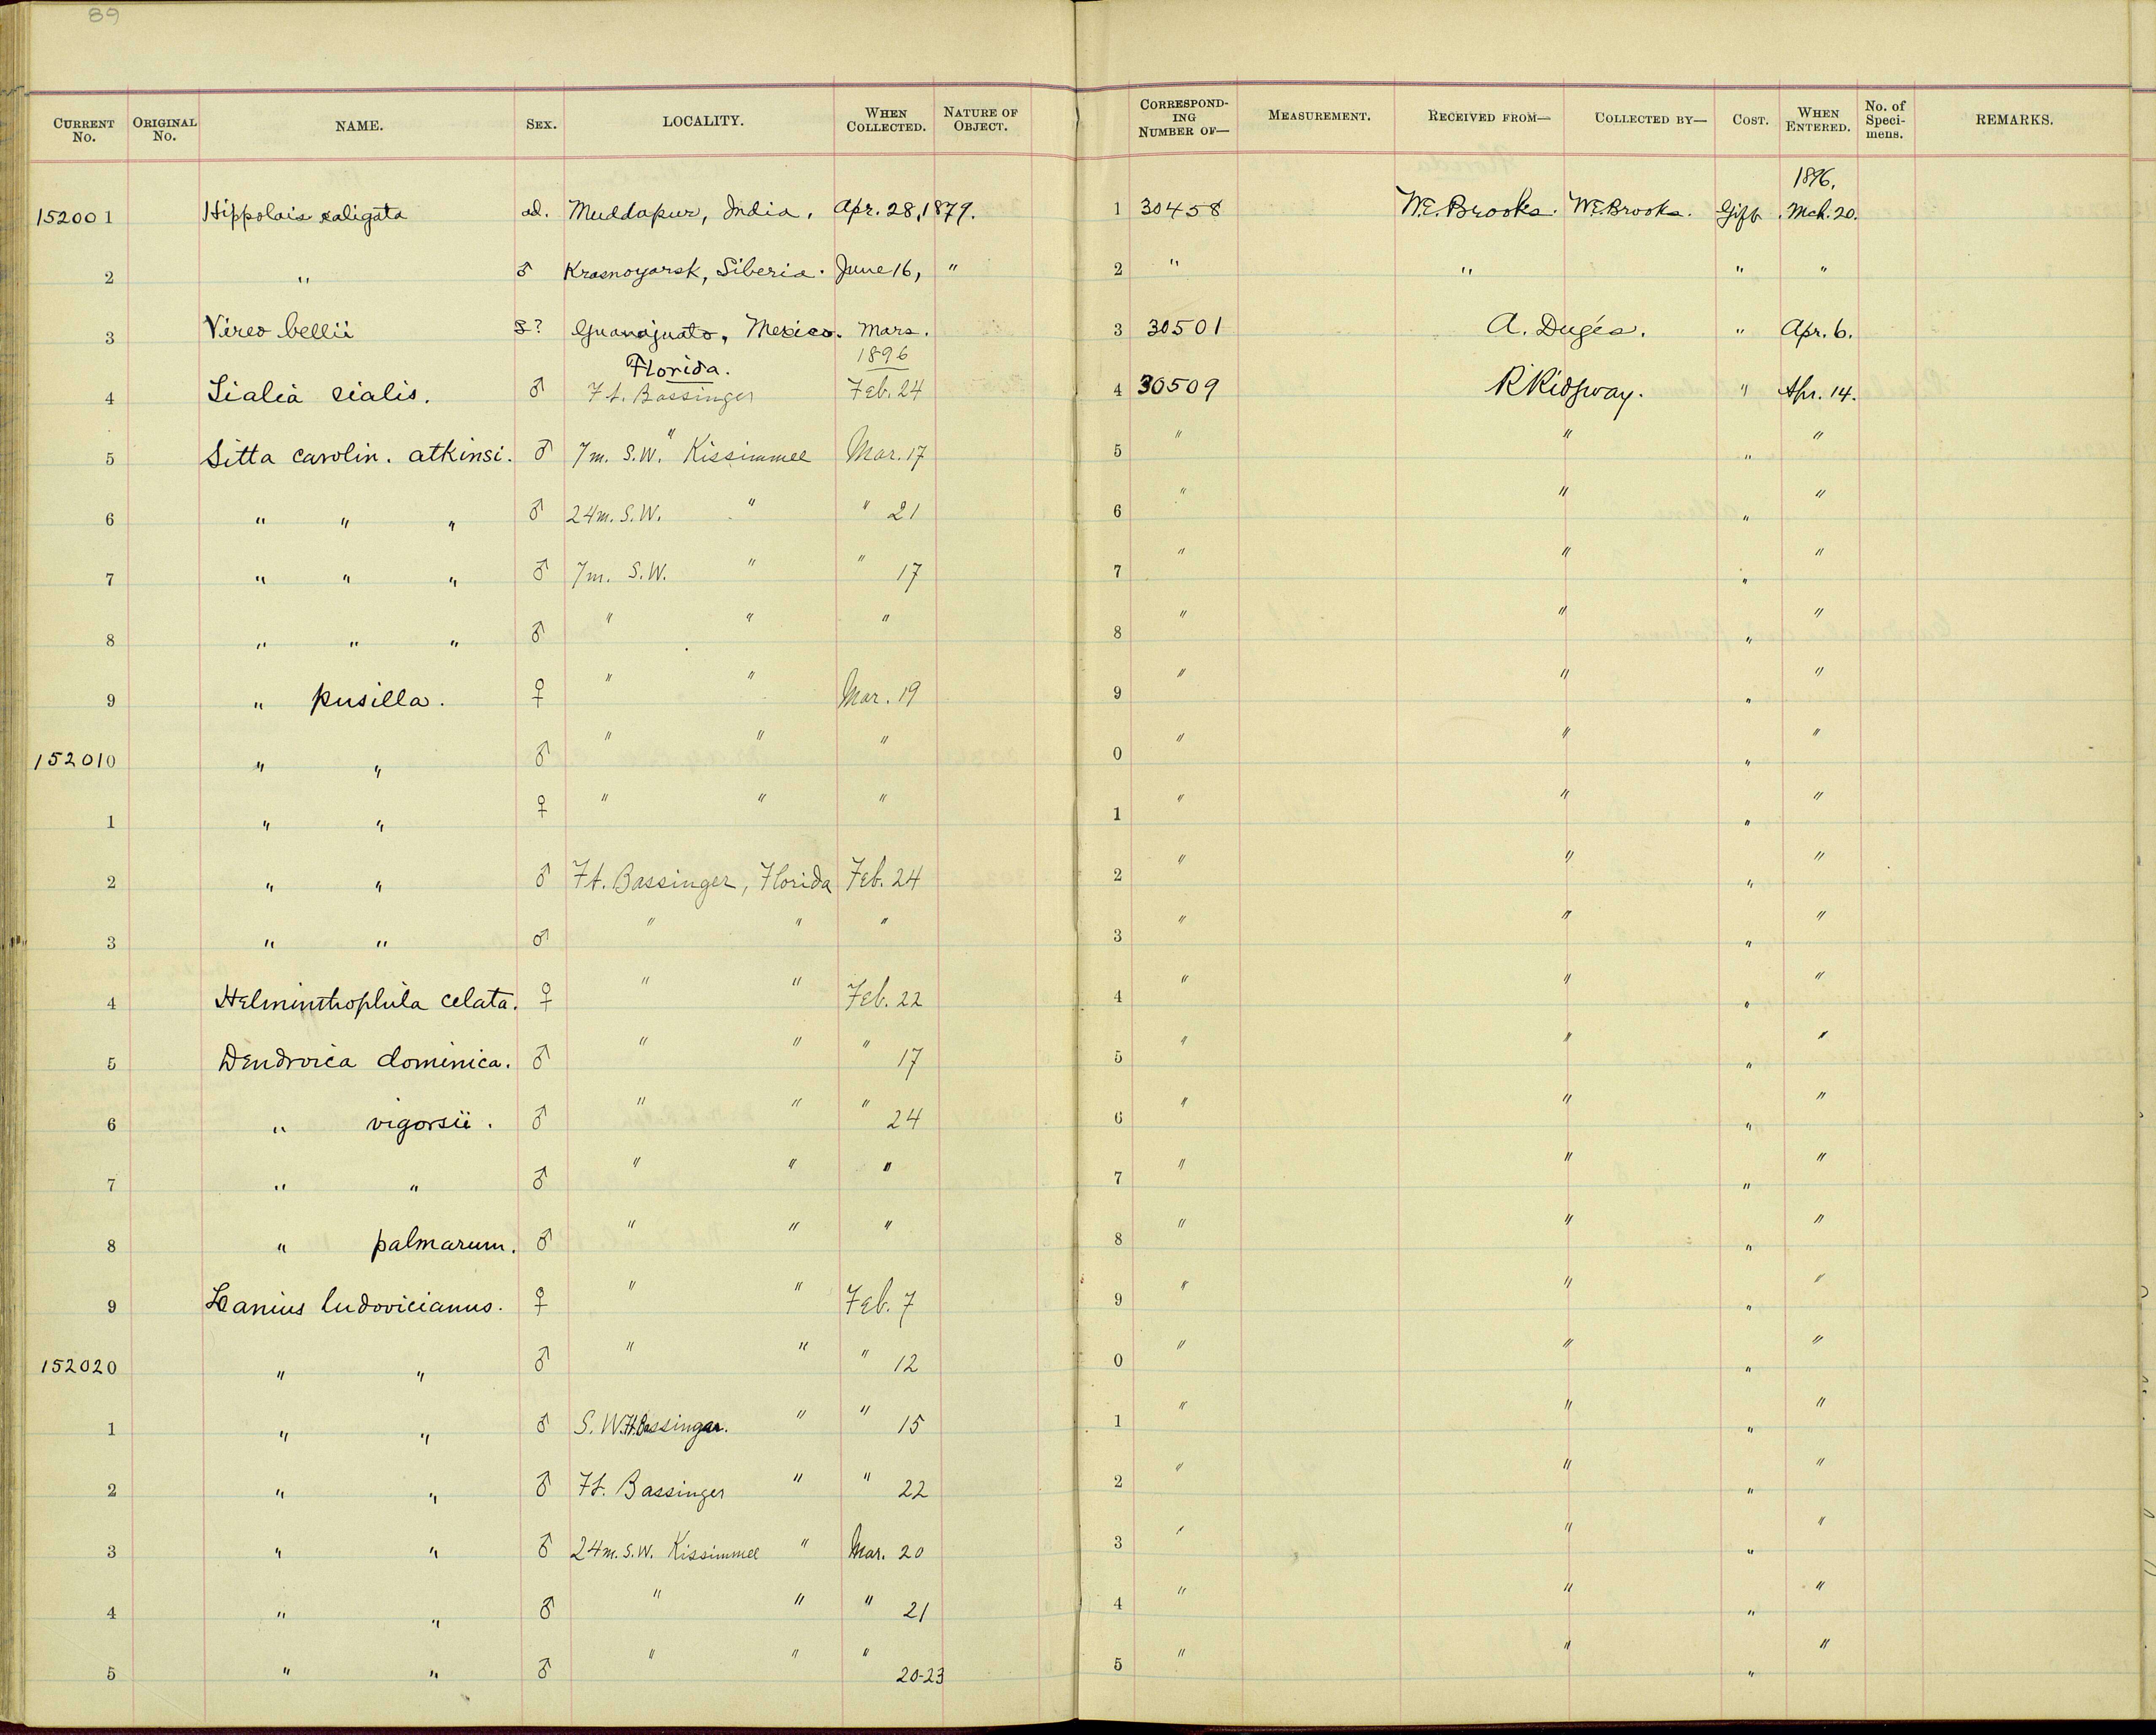 89
CURRENT No. ORIGINAL No. NAME. SEX. LOCALITY. WHEN COLLECTED. NATURE OF OBJECT. CORRESPONDING NUMBER OF— MEASUREMENT. RECEIVED FROM— COLLECTED BY— COST. WHEN ENTERED. No. of Specimens. REMARKS.
1896.
152001 Hippolais caligata ad. Muddapur, India. Apr. 28, 1879. 1 30458 W.E. Brooks. W.E. Brooks. Gift. Mch. 20.
2 " ♂ Krasnoyarsk, Siberia. June 16, " 2 " " " "
3 Vireo bellii ? Guanajuato, Mexico. Mars. 3 30501 A. Dugès. " Apr. 6.
Florida. 1896
4 Sialia sialis. ♂ Ft. Bassinger Feb. 24 4 30509 R Ridgway. " Apr. 14.
5 Sitta carolin. atkinsi. ♂ 7m. S.W. " Kissimmee Mar. 17 5 " " " "
6 " " " ♂ 24m. S.W. " " 21 6 " " " "
7 " " " ♂ 7m. S.W. " " 17 7 " " " "
8 " " " ♂ " " " 8 " " " "
9 " pusilla. ♀ " " Mar. 19 9 " " " "
152010 " " ♂ " " " 0 " " " "
1 " " ♀ " " " 1 " " " "
2 " " ♂ Ft. Bassinger, Florida Feb. 24 2 " " " "
3 " " ♂ " " " 3 " " " "
4 Helminthophila celata. ♀ " " Feb. 22 4 " " " "
5 Dendroica dominica. ♂ " " " 17 5 " " " "
6 " vigorsii. ♂ " " " 24 6 " " " "
7 " " ♂ " " " 7 " " " "
8 " palmarum. ♂ " " " 8 " " " "
9 Lanius ludovicianus. ♀ " " Feb. 7 9 " " " "
152020 " " ♂ " " " 12 0 " " " "
1 " " ♂ S. W. Ft. Bassinger. " " 15 1 " " " "
2 " " ♂ Ft. Bassinger " " 22 2 " " " "
3 " " ♂ 24m. S.W. Kissimmee " Mar. 20 3 " " " "
4 " " ♂ " " " 21 4 " " " "
5 " " ♂ " " " 20-23 5 " " " "